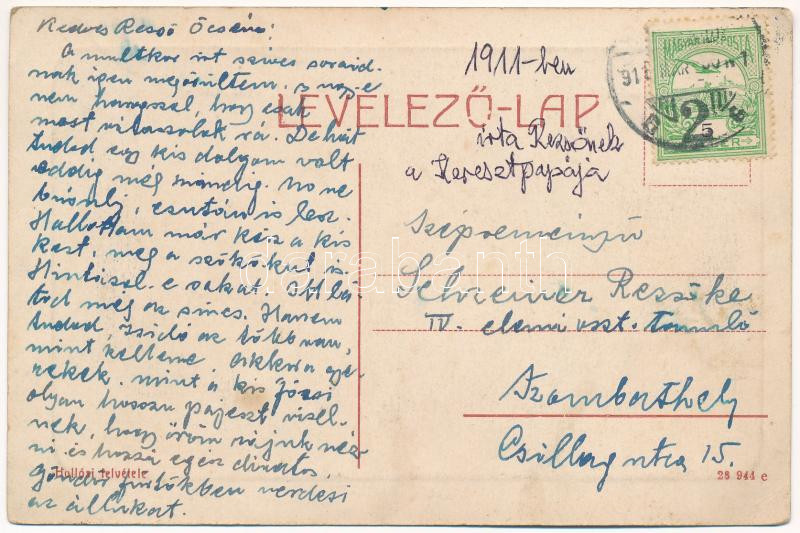 Kedves Rezső Öcsém!
A multkor írt szíves soraid-
nak igen megörültem, s ne
nem haragszol, hogy csak
most válaszolok rá. De hát
tudod egy kis dolgom volt
eddig még mindig. No ne
búsulj, ezután is lesz.
Hallottam már kész a kis
kert, meg a szökőkút is.
Itt lá-
tod meg az sincs. Hanem
tudod, zsidó az több van,
mint kellene. Akkora gye-
rekek, mint a kis Józsi
olyan hosszu pajeszt visel-
nek, hogy öröm rájuk néz-
ni és hozzá egész
fürtökben verdesi
az állukat.
Hollósi felvétele
LEVELEZŐ-LAP
1911-ben
írta Rezsőnek
a Keresztpapája
MAGYAR KIR. POSTA
911
5
Szépreményű
Schreiner Rezsőke
IV. elemi oszt. tanuló
Szombathely
Csillag utca 15.
28 944 c
darabanth